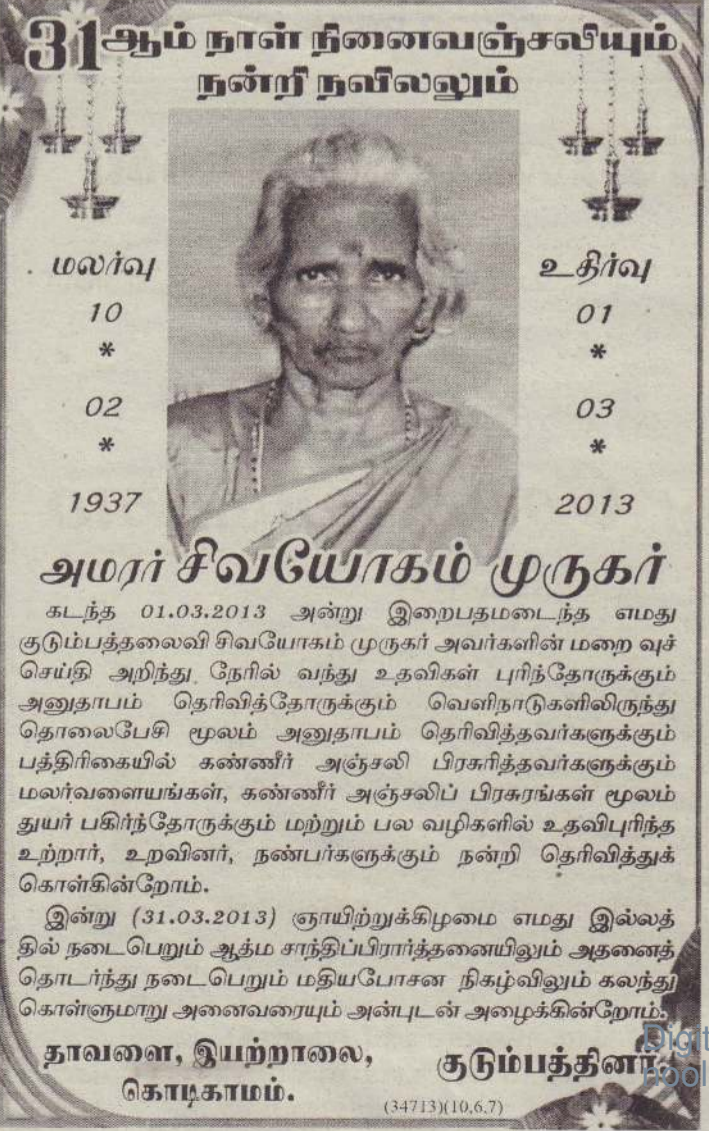 31ஆம் நாள் நினைவஞ்சலியும்
நன்றி நவிலலும்
மலர்வு
10
*
02
*
1937
உதிர்வு
01
*
03
*
2013
அமரர் சிவயோகம் முருகர்
கடந்த 01.03.2013 அன்று இறைபதமடைந்த எமது
குடும்பத்தலைவி சிவயோகம் முருகர் அவர்களின் மறை வுச்
செய்தி அறிந்து நேரில் வந்து உதவிகள் புரிந்தோருக்கும்
அனுதாபம் தெரிவித்தோருக்கும் வெளிநாடுகளிலிருந்து
தொலைபேசி மூலம் அனுதாபம் தெரிவித்தவர்களுக்கும்
பத்திரிகையில் கண்ணீர் அஞ்சலி பிரசுரித்தவர்களுக்கும்
மலர்வளையங்கள், கண்ணீர் அஞ்சலிப் பிரசுரங்கள் மூலம்
துயர் பகிர்ந்தோருக்கும் மற்றும் பல வழிகளில் உதவிபுரிந்த
உற்றார், உறவினர், நண்பர்களுக்கும் நன்றி தெரிவித்துக்
கொள்கின்றோம்.
இன்று (31.03.2013) ஞாயிற்றுக்கிழமை எமது இல்லத்
தில் நடைபெறும் ஆத்ம சாந்திப்பிரார்த்தனையிலும் அதனைத்
தொடர்ந்து நடைபெறும் மதியபோசன நிகழ்விலும் கலந்து
கொள்ளுமாறு அனைவரையும் அன்புடன் அழைக்கின்றோம்.
தாவளை, இயற்றாலை,
கொடிகாமம்.
குடும்பத்தினர்
(34713)(10,6,7)